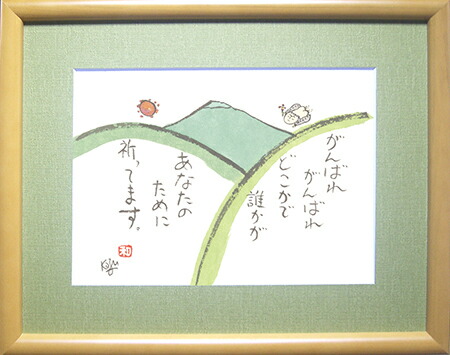 がんばれ
がんばれ
どこかで
誰かが
あなたの
ために
祈ってます。
和